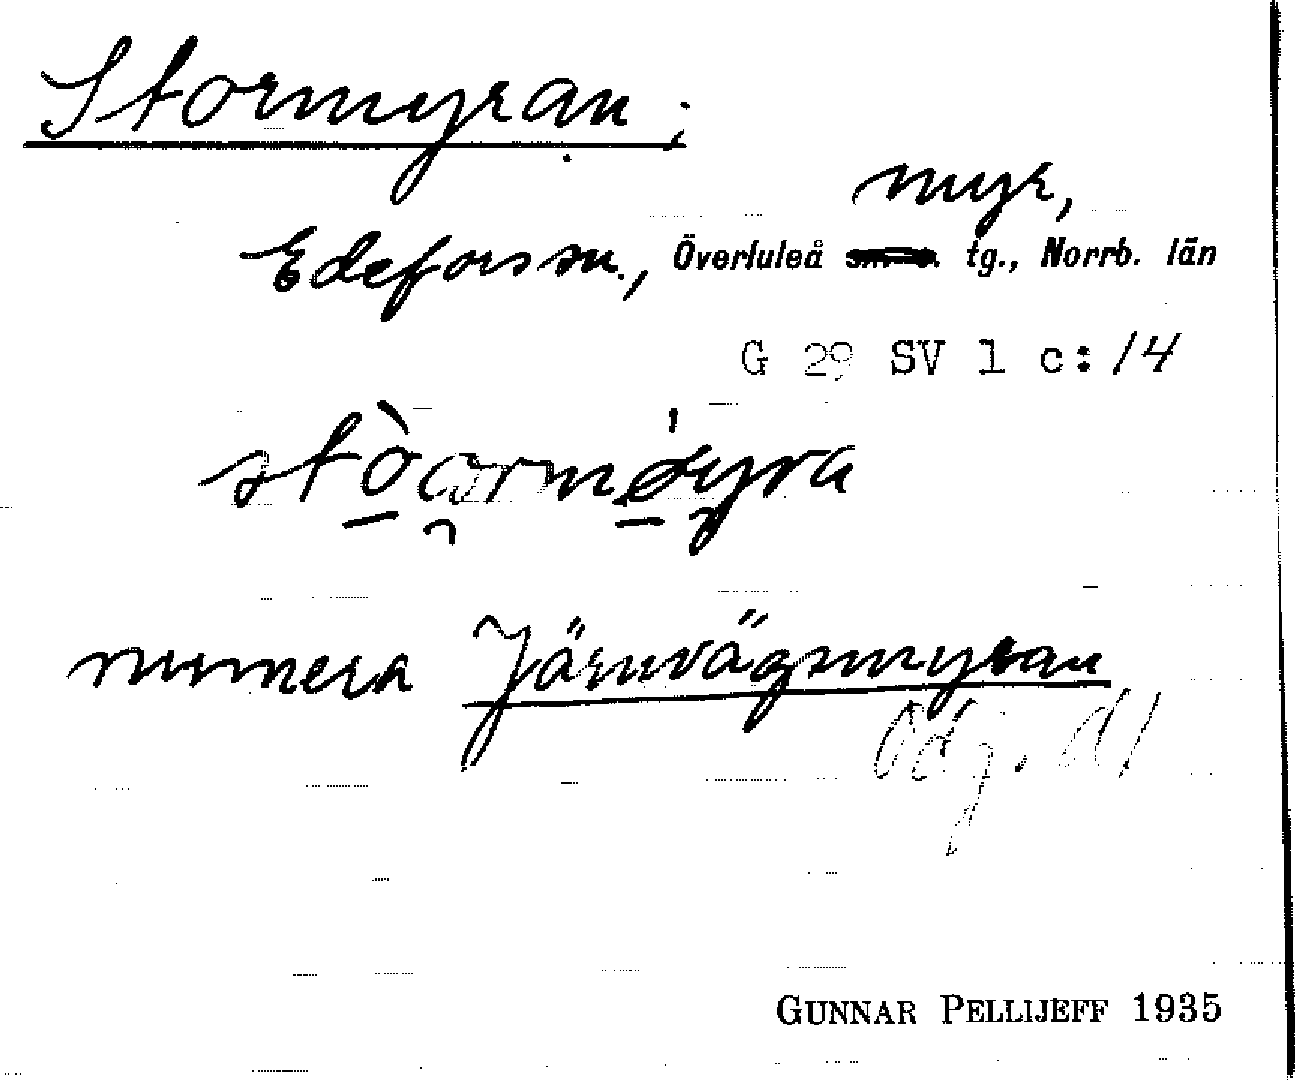 Stormyran;
myr,
Edefors sn., Överluleå tg., Norrb. län
G 29 SV 1 c:14
numera Järnvägsmyran
GUNNAR PELLIJEFF 1935